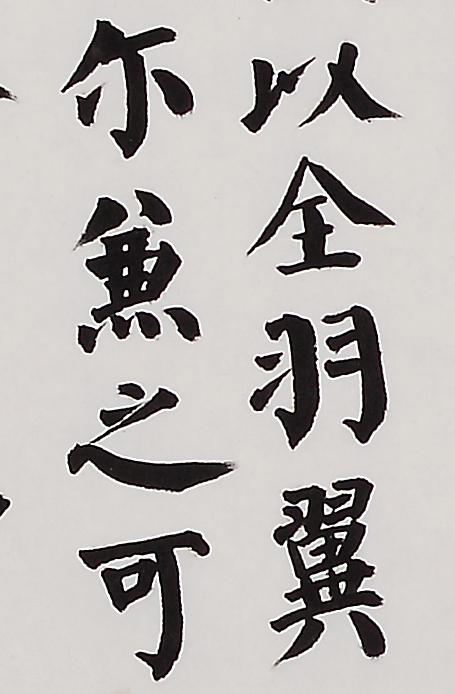 以全羽翼
尔兼之可